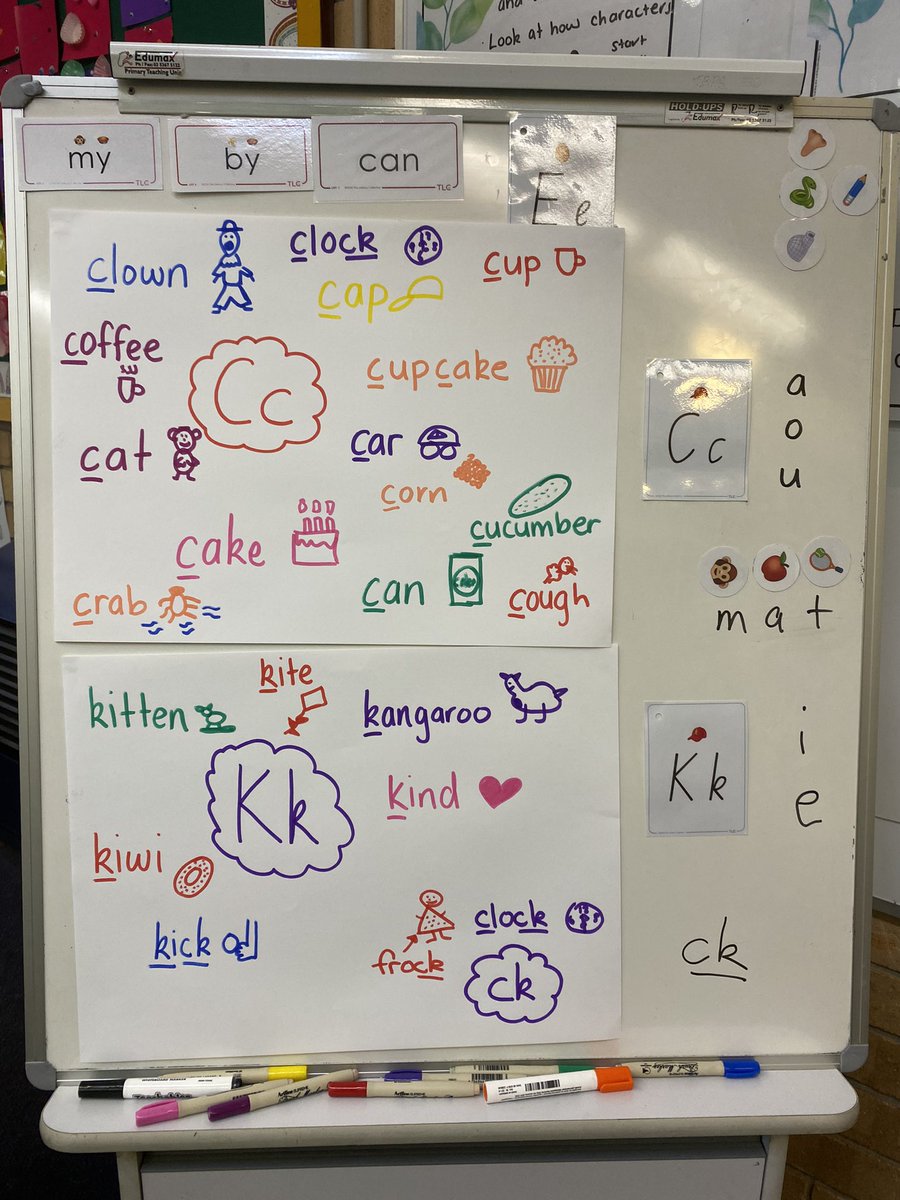 and
Look at how characters
start
Edumax
Ph / Fax: 02 9367 5122
Primary Teaching Unit
HOLD-UPS
Edumax
my
by
can
TLC
TLC
TLC
E e
clown
clock
cup
cap
coffee
Cc
cupcake
cat
car
corn
cucumber
cake
can
cough
crab
Cc
a
o
u
m a t
kitten
kite
kangaroo
Kk
kind
kiwi
kick
frock
clock
ck
Kk
i
e
ck